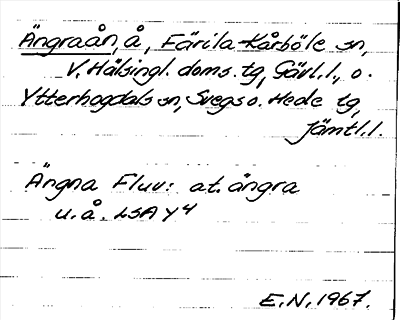 Ängraån, å, Färila-Kårböle sn,
V. Hälsingl. doms. tg, Gävl.l., o.
Ytterhogdals sn, Svegs o. Hede tg,
Jämtl.l.
Ängna Fluv: at. ångra
u. å. LSA Y4
E.N. 1967.